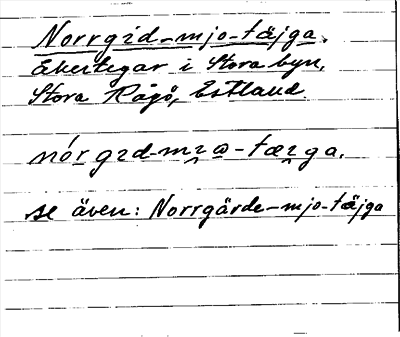 Norrgid-mjo-täjga.
Åkertegar i Stora byn,
Stora Rågö, Estland.
nórgɪd-mɪ̯ɷ-tæɪ̯ga.
se även: Norrgärde-mjo-täjga